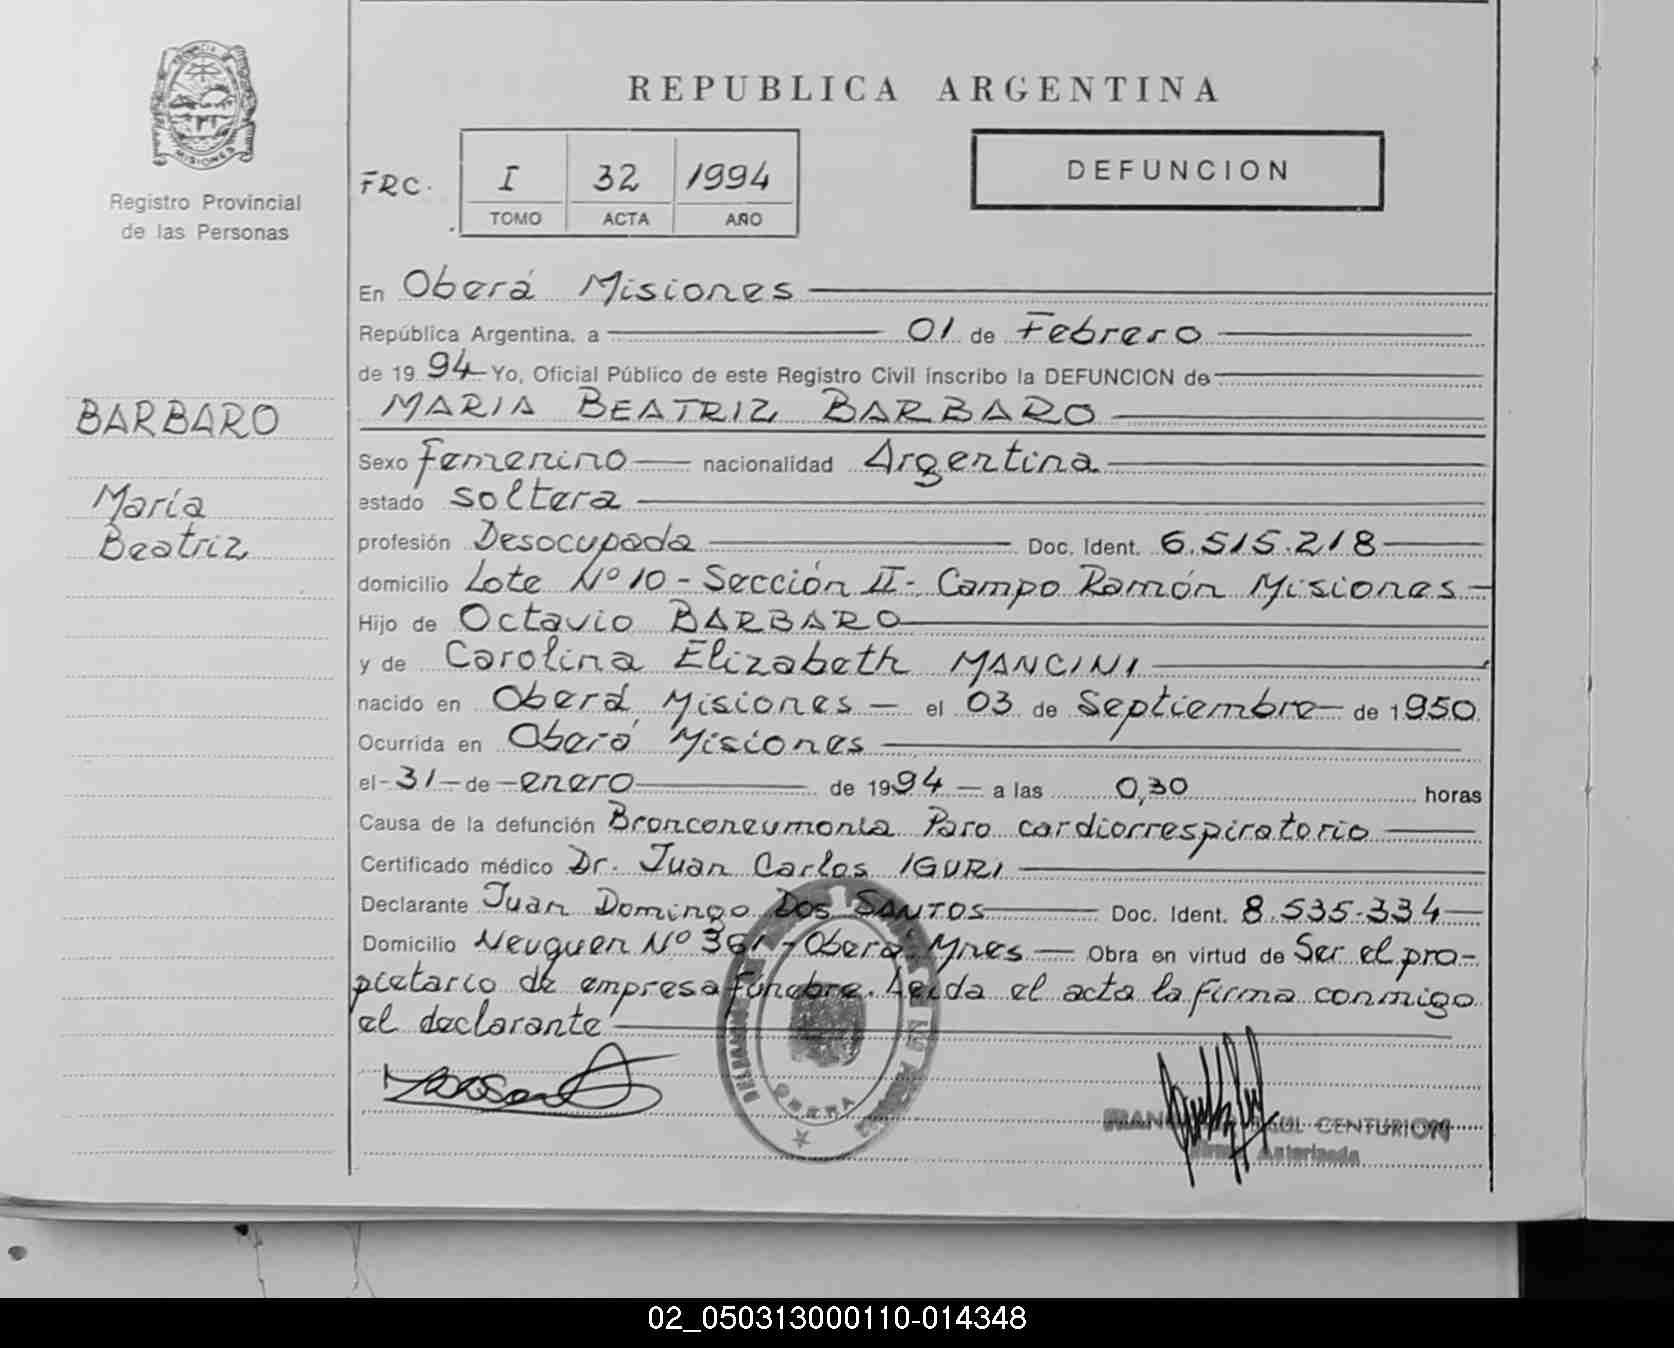 PROVINCIA DE
MISIONES
Registro Provincial
de las Personas
BARBARO
María
Beatriz
REPUBLICA ARGENTINA
FRC. I 32 1994
TOMO ACTA AÑO
DEFUNCION
En Oberá Misiones
República Argentina, a 01 de Febrero
de 19 94 Yo, Oficial Público de este Registro Civil inscribo la DEFUNCION de
MARIA BEATRIZ BARBARO
Sexo Femenino nacionalidad Argentina
estado soltera
profesión Desocupada Doc. Ident. 6.515.218
domicilio Lote Nº 10 - Sección II - Campo Ramón Misiones
Hijo de Octavio BARBARO
y de Carolina Elizabeth MANCINI
nacido en Oberá Misiones el 03 de Septiembre de 1950
Ocurrida en Oberá Misiones
el 31 de enero de 1994 a las 0,30 horas
Causa de la defunción Bronconeumonia Paro cardiorrespiratorio
Certificado médico Dr. Juan Carlos IGURI
Declarante Juan Domingo Dos SANTOS Doc. Ident. 8.535.334
Domicilio Neuquen Nº 361 - Oberá Mnes Obra en virtud de Ser el pro-
pietario de empresa fúnebre. Leida el acta la firma conmigo
el declarante
OBERA
RAUL CENTURION
Firma Autorizada
02_050313000110-014348